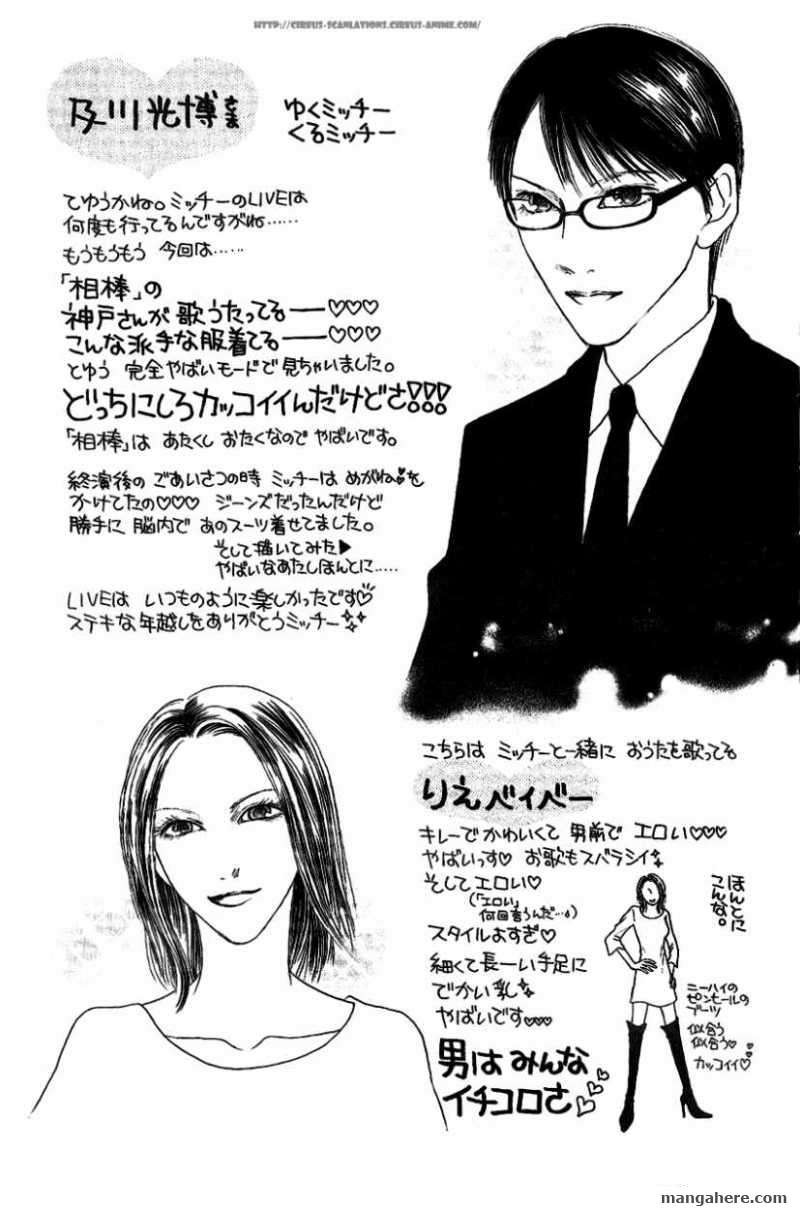 HTTP://CIRCUS-SCANLATIONS.CIRCUS-ANIME.COM/
及川光博さま
ゆくミッチー
くるミッチー
てゆうかね。ミッチーのLIVEは
何度も行ってるんですがね……
もうもうもう 今回は……
「相棒」の
神戸さんが 歌うたってるー♡♡♡
こんな派手な服着てるー♡♡♡
とゆう 完全やばいモードで見ちゃいました。
どっちにしろカッコイイんだけどさ!!!
「相棒」は あたくし おたくなので やばいです。
終演後の ごあいさつの時 ミッチーは めがね♡を
かけてたの♡♡♡ ジーンズだったんだけど
勝手に 脳内で あのスーツ着せてました。
そして描いてみた▶
やばいなあたしほんとに……
LIVEは いつものように楽しかったです♡
ステキな年越しをありがとうミッチー
こちらは ミッチーと一緒に おうたを歌ってる
りえベイベー
キレーでかわいくて 男前で エロい♡♡♡
やばいっす♡ お歌もスバラシイ
そしてエロい♡
(「エロい」
何回言うんだ…♪)
スタイルよすぎ♡
細くて長ーい手足に
でかい乳
やばいです♡♡♡
男はみんな
イチコロさ♡♡
ほんとに
こんな。
ニーハイの
ピンヒールの
ブーツ
似合う
似合う♡
カッコイイ♡
mangahere.com